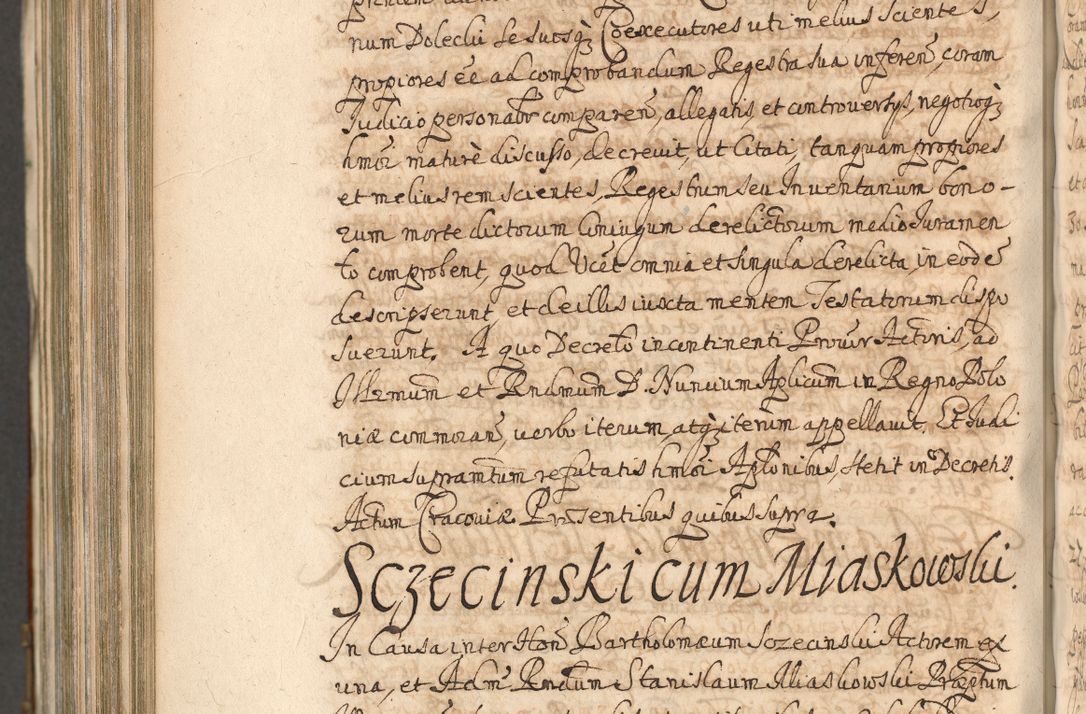 num Dolecki Le suosq; Coexecutores uti melius scientes,
propiores ee ad comprobandum Regestra sua inferen, coram
Judicio personalr comparen, allegatis, et controversijs, negotioq;
hmoi maturè discusso, decrevit, ut Citati, tanquam propiores
et melius rem scientes, Regestrum seu Inventarium bono-
rum morte dictorum Coniugum derelictorum medio Juramen
to comprobent, quod Vcet omnia et singula derelicta, in eode
descripserunt, et de illis iuxta mentem Testatorum dispo
suerunt. A quo Decreto incontinenti Provisr Actoris, ad
Illrmum et Rndmum D. Nuncium Aplicum in Regno Polo
niæ commoran, verbo iterum, atq; iterum appellavit. Et Judi
cium supramtum refutatis hmoi Aplonibus, stetit in Decretis.
Actum Cracoviæ Præsentibus quibus supra.
Sczecinski cum Miaskowski.
In Causa inter Hon Bartholomæum Sczecinski Actorem ex
una, et Adm Rndum Stanislaum Miaskowski Præptum